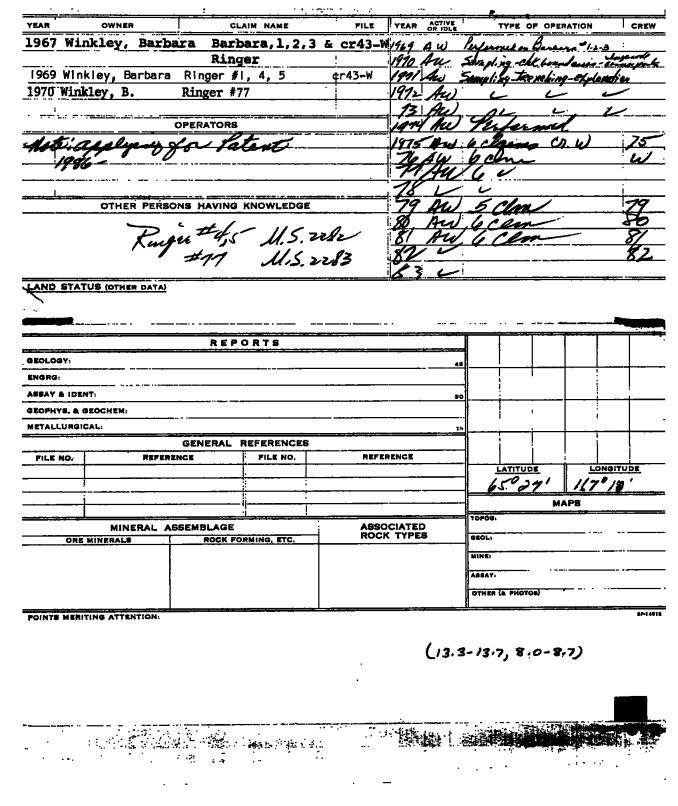 YEAR OWNER CLAIM NAME FILE YEAR ACTIVE OR IDLE TYPE OF OPERATION CREW
1967 Winkley, Barbara Barbara,1,2,3 & cr43-W
Ringer
1969 Winkley, Barbara Ringer #1, 4, 5 cr43-W
1970 Winkley, B. Ringer #77
1969 AW Performed on Barbara #1-2-3
1970 AW Sampling-
1971 AW Sampling Trenching-exploration
1972 AW ✓ ✓ ✓
73 AW ✓ ✓ ✓
1974 AW Performed
1975 AW 6 Claims CR. W 75
76 AW 6 clm W
77 AW 6 ✓
78 ✓ ✓
79 AW 5 Clm 79
80 AW 6 Clm 80
81 AW 6 Clm 81
82 ✓ 82
83 ✓
OPERATORS
Note: applying for Patent
1986-
OTHER PERSONS HAVING KNOWLEDGE
Ringer #4,5 M.S. 2282
#77 M.S. 2283
LAND STATUS (OTHER DATA)
REPORTS
GEOLOGY:
ENGRG:
ASSAY & IDENT:
GEOPHYS, & GEOCHEM:
METALLURGICAL:
GENERAL REFERENCES
FILE NO. REFERENCE FILE NO. REFERENCE
LATITUDE LONGITUDE
65° 27' 167° 10'
MAPS
TOPOG:
GEOL:
MINE:
ASSAY:
OTHER (& PHOTOS)
MINERAL ASSEMBLAGE ASSOCIATED ROCK TYPES
ORE MINERALS ROCK FORMING, ETC.
POINTS MERITING ATTENTION:
(13.3-13.7, 8.0-8.7)